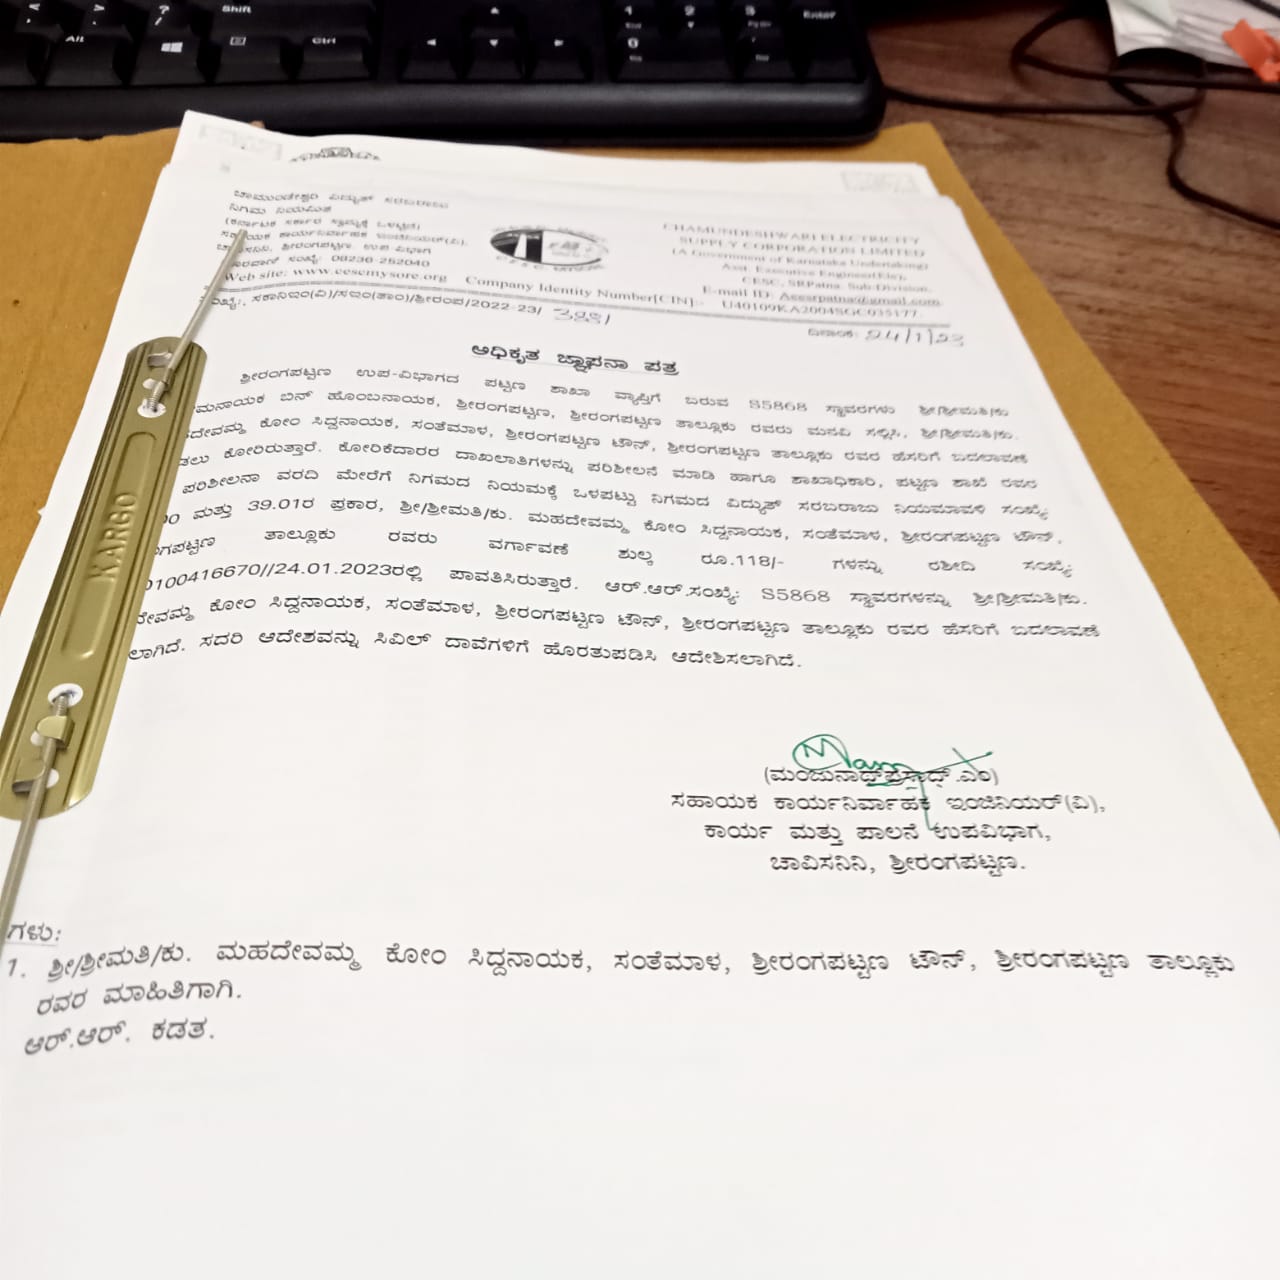 ಚಾಮುಂಡೇಶ್ವರಿ ವಿದ್ಯುತ್ ಸರಬರಾಜು
ನಿಗಮ ನಿಯಮಿತ
(ಕರ್ನಾಟಕ ಸರ್ಕಾರ ಸ್ವಾಮ್ಯಕ್ಕೆ ಒಳಪಟ್ಟಿದೆ)
ಕಾರ್ಯನಿರ್ವಾಹಕ ಇಂಜಿನಿಯರ್(ವಿ),
ಶ್ರೀರಂಗಪಟ್ಟಣ ಉಪ-ವಿಭಾಗ
ಸಂಖ್ಯೆ: 08236-252040
Web site: www.cescmysore.org
CHAMUNDESHWARI ELECTRICITY
SUPPLY CORPORATION LIMITED
(A Government of Karnataka Undertaking)
Asst. Executive Engineer(Ele),
CESC, SRPatna. Sub-Division.
E-mail ID: Aeesrpatna@gmail.com
Company Identity Number[CIN]:- U40109KA2004SGC035177.
ಸಕಾನಿಇಂ(ವಿ)/ಸಇಂ(ತಾಂ)/ಶ್ರೀರಂಪ/2022-23/
ದಿನಾಂಕ: 24/1/23
ಅಧಿಕೃತ ಜ್ಞಾಪನಾ ಪತ್ರ
ಶ್ರೀರಂಗಪಟ್ಟಣ ಉಪ-ವಿಭಾಗದ ಪಟ್ಟಣ ಶಾಖಾ ವ್ಯಾಪ್ತಿಗೆ ಬರುವ S5868 ಸ್ಥಾವರಗಳು ಶ್ರೀ/ಶ್ರೀಮತಿ/ಕು
ಬಿನ್ ಹೊಂಬನಾಯಕ, ಶ್ರೀರಂಗಪಟ್ಟಣ, ಶ್ರೀರಂಗಪಟ್ಟಣ ತಾಲ್ಲೂಕು ರವರು ಮನವಿ ಸಲ್ಲಿಸಿ, ಶ್ರೀ/ಶ್ರೀಮತಿ/ಕು.
ಕೋಂ ಸಿದ್ದನಾಯಕ, ಸಂತೆಮಾಳ, ಶ್ರೀರಂಗಪಟ್ಟಣ ಟೌನ್, ಶ್ರೀರಂಗಪಟ್ಟಣ ತಾಲ್ಲೂಕು ರವರ ಹೆಸರಿಗೆ ಬದಲಾವಣೆ
ಕೋರಿರುತ್ತಾರೆ. ಕೋರಿಕೆದಾರರ ದಾಖಲಾತಿಗಳನ್ನು ಪರಿಶೀಲನೆ ಮಾಡಿ ಹಾಗೂ ಶಾಖಾಧಿಕಾರಿ, ಪಟ್ಟಣ ಶಾಖೆ ರವರ
ಪರಿಶೀಲನಾ ವರದಿ ಮೇರೆಗೆ ನಿಗಮದ ನಿಯಮಕ್ಕೆ ಒಳಪಟ್ಟು ನಿಗಮದ ವಿದ್ಯುತ್ ಸರಬರಾಜು ನಿಯಮಾವಳಿ ಸಂಖ್ಯೆ:
ಮತ್ತು 39.01ರ ಪ್ರಕಾರ, ಶ್ರೀ/ಶ್ರೀಮತಿ/ಕು. ಮಹದೇವಮ್ಮ ಕೋಂ ಸಿದ್ದನಾಯಕ, ಸಂತೆಮಾಳ, ಶ್ರೀರಂಗಪಟ್ಟಣ ಟೌನ್,
ತಾಲ್ಲೂಕು ರವರು ವರ್ಗಾವಣೆ ಶುಲ್ಕ ರೂ.118/- ಗಳನ್ನು ರಶೀದಿ ಸಂಖ್ಯೆ:
0100416670//24.01.2023ರಲ್ಲಿ ಪಾವತಿಸಿರುತ್ತಾರೆ. ಆರ್.ಆರ್.ಸಂಖ್ಯೆ: S5868 ಸ್ಥಾವರಗಳನ್ನು ಶ್ರೀ/ಶ್ರೀಮತಿ/ಕು.
ಕೋಂ ಸಿದ್ದನಾಯಕ, ಸಂತೆಮಾಳ, ಶ್ರೀರಂಗಪಟ್ಟಣ ಟೌನ್, ಶ್ರೀರಂಗಪಟ್ಟಣ ತಾಲ್ಲೂಕು ರವರ ಹೆಸರಿಗೆ ಬದಲಾವಣೆ
ಲಾಗಿದೆ. ಸದರಿ ಆದೇಶವನ್ನು ಸಿವಿಲ್ ದಾವೆಗಳಿಗೆ ಹೊರತುಪಡಿಸಿ ಆದೇಶಿಸಲಾಗಿದೆ.
(ಮಂಜುನಾಥ್‌ಪ್ರಸಾದ್.ಎಂ)
ಸಹಾಯಕ ಕಾರ್ಯನಿರ್ವಾಹಕ ಇಂಜಿನಿಯರ್(ವಿ),
ಕಾರ್ಯ ಮತ್ತು ಪಾಲನೆ ಉಪವಿಭಾಗ,
ಚಾವಿಸನಿನಿ, ಶ್ರೀರಂಗಪಟ್ಟಣ.
ಗಳು:
1. ಶ್ರೀ/ಶ್ರೀಮತಿ/ಕು. ಮಹದೇವಮ್ಮ ಕೋಂ ಸಿದ್ದನಾಯಕ, ಸಂತೆಮಾಳ, ಶ್ರೀರಂಗಪಟ್ಟಣ ಟೌನ್, ಶ್ರೀರಂಗಪಟ್ಟಣ ತಾಲ್ಲೂಕು
ರವರ ಮಾಹಿತಿಗಾಗಿ.
ಆರ್.ಆರ್. ಕಡತ.
KARGO
Shift
Alt
Ctrl
Enter